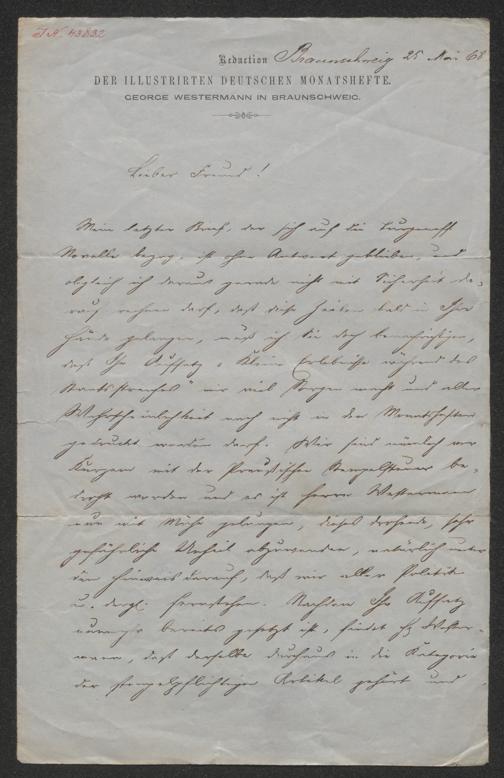 I.N. 43832
Redaction Braunschweig 25 Mai 68
DER ILLUSTRIRTEN DEUTSCHEN MONATSHEFTE.
GEORGE WESTERMANN IN BRAUNSCHWEIG.
Lieber Freund!
Mein letzter Brief, der sich auf die Turgeneff
Novelle bezog, ist ohne Antwort geblieben, und
obgleich ich daraus gerade nicht mit Sicherheit da-
rauf rechnen darf, daß diese Zeilen bald in Ihre
Hände gelangen, muß ich Sie doch benachrichtigen,
daß Ihr Aufsatz „Kleine Erlebnisse während des
Staatsstreiches" mir viel Sorgen macht und aller
Wahrscheinlichkeit nach nicht in den Monatsheften
gedruckt werden darf. Wir sind nämlich vor
Kurzem mit der Preußischen Stempelsteuer be-
droht worden und es ist Herrn Westermann
nur mit Mühe gelungen, dieses drohende, sehr
gefährliche Unheil abzuwenden, natürlich unter
dem Hinweis darauf, daß wir aller Politik
u. dergl. fernstehen. Nachdem Ihr Aufsatz
nunmehr bereits gesetzt ist, findet H. Wester-
mann, daß derselbe durchaus in die Kategorie
der stempelpflichtigen Artikel gehört und